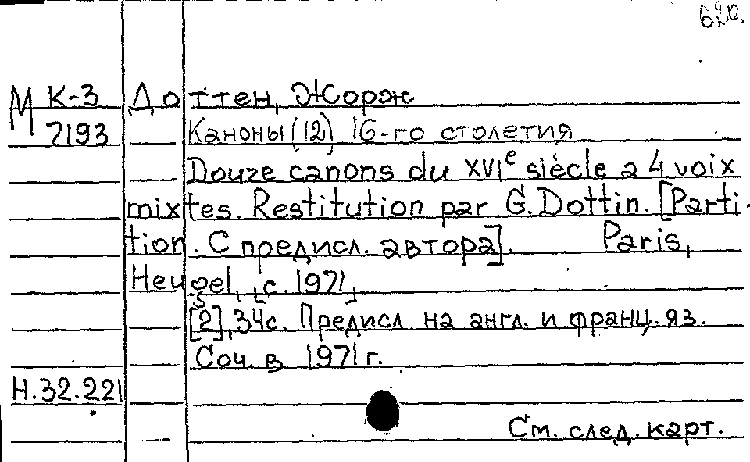 М К-3 Доттен, Жорж
7193 Каноны (12) 16-го столетия
Douze canons du XVIe siècle a 4 voix
mixtes. Restitution par G. Dottin. [Parti-
tion. С предисл. автора]. Paris,
Heugel, [c. 1971]
[2], 34с. Предисл. на англ. и франц. яз.
Соч. в 1971 г.
Н.32.221
См. след. карт.